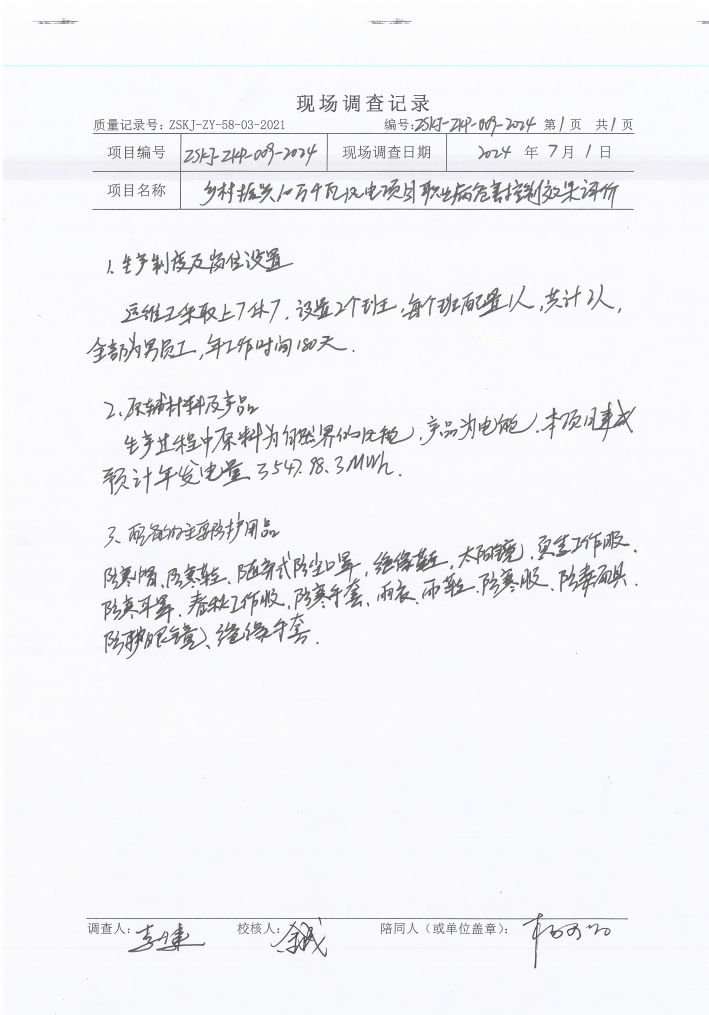 现场调查记录
质量记录号：ZSKJ-ZY-58-03-2021 编号：ZSKJ-ZKP-009-2024 第1页 共1页
项目编号 ZSKJ-ZKP-009-2024 现场调查日期 2024 年 7 月 1 日
项目名称 乡村振兴10万千瓦风电项目职业病危害控制效果评价
1、生产制度及岗位设置
运维工采取上7休7，设置2个班，每个班配置1人，共计2人，
全部为男员工，年工作时间180天。
2、原辅材料及产品
生产过程中原料为自然界的风能，产品为电能，本项目建成
预计年发电量 354798.3MWh.
3、配备的主要防护用品
防寒帽、防寒鞋、随弃式防尘口罩，绝缘鞋，太阳镜、夏季工作服、
防噪耳罩、春秋工作服、防寒手套、雨衣、雨鞋、防寒服、防毒面具、
防护眼镜、绝缘手套.
调查人： 校核人： 陪同人（或单位盖章）：